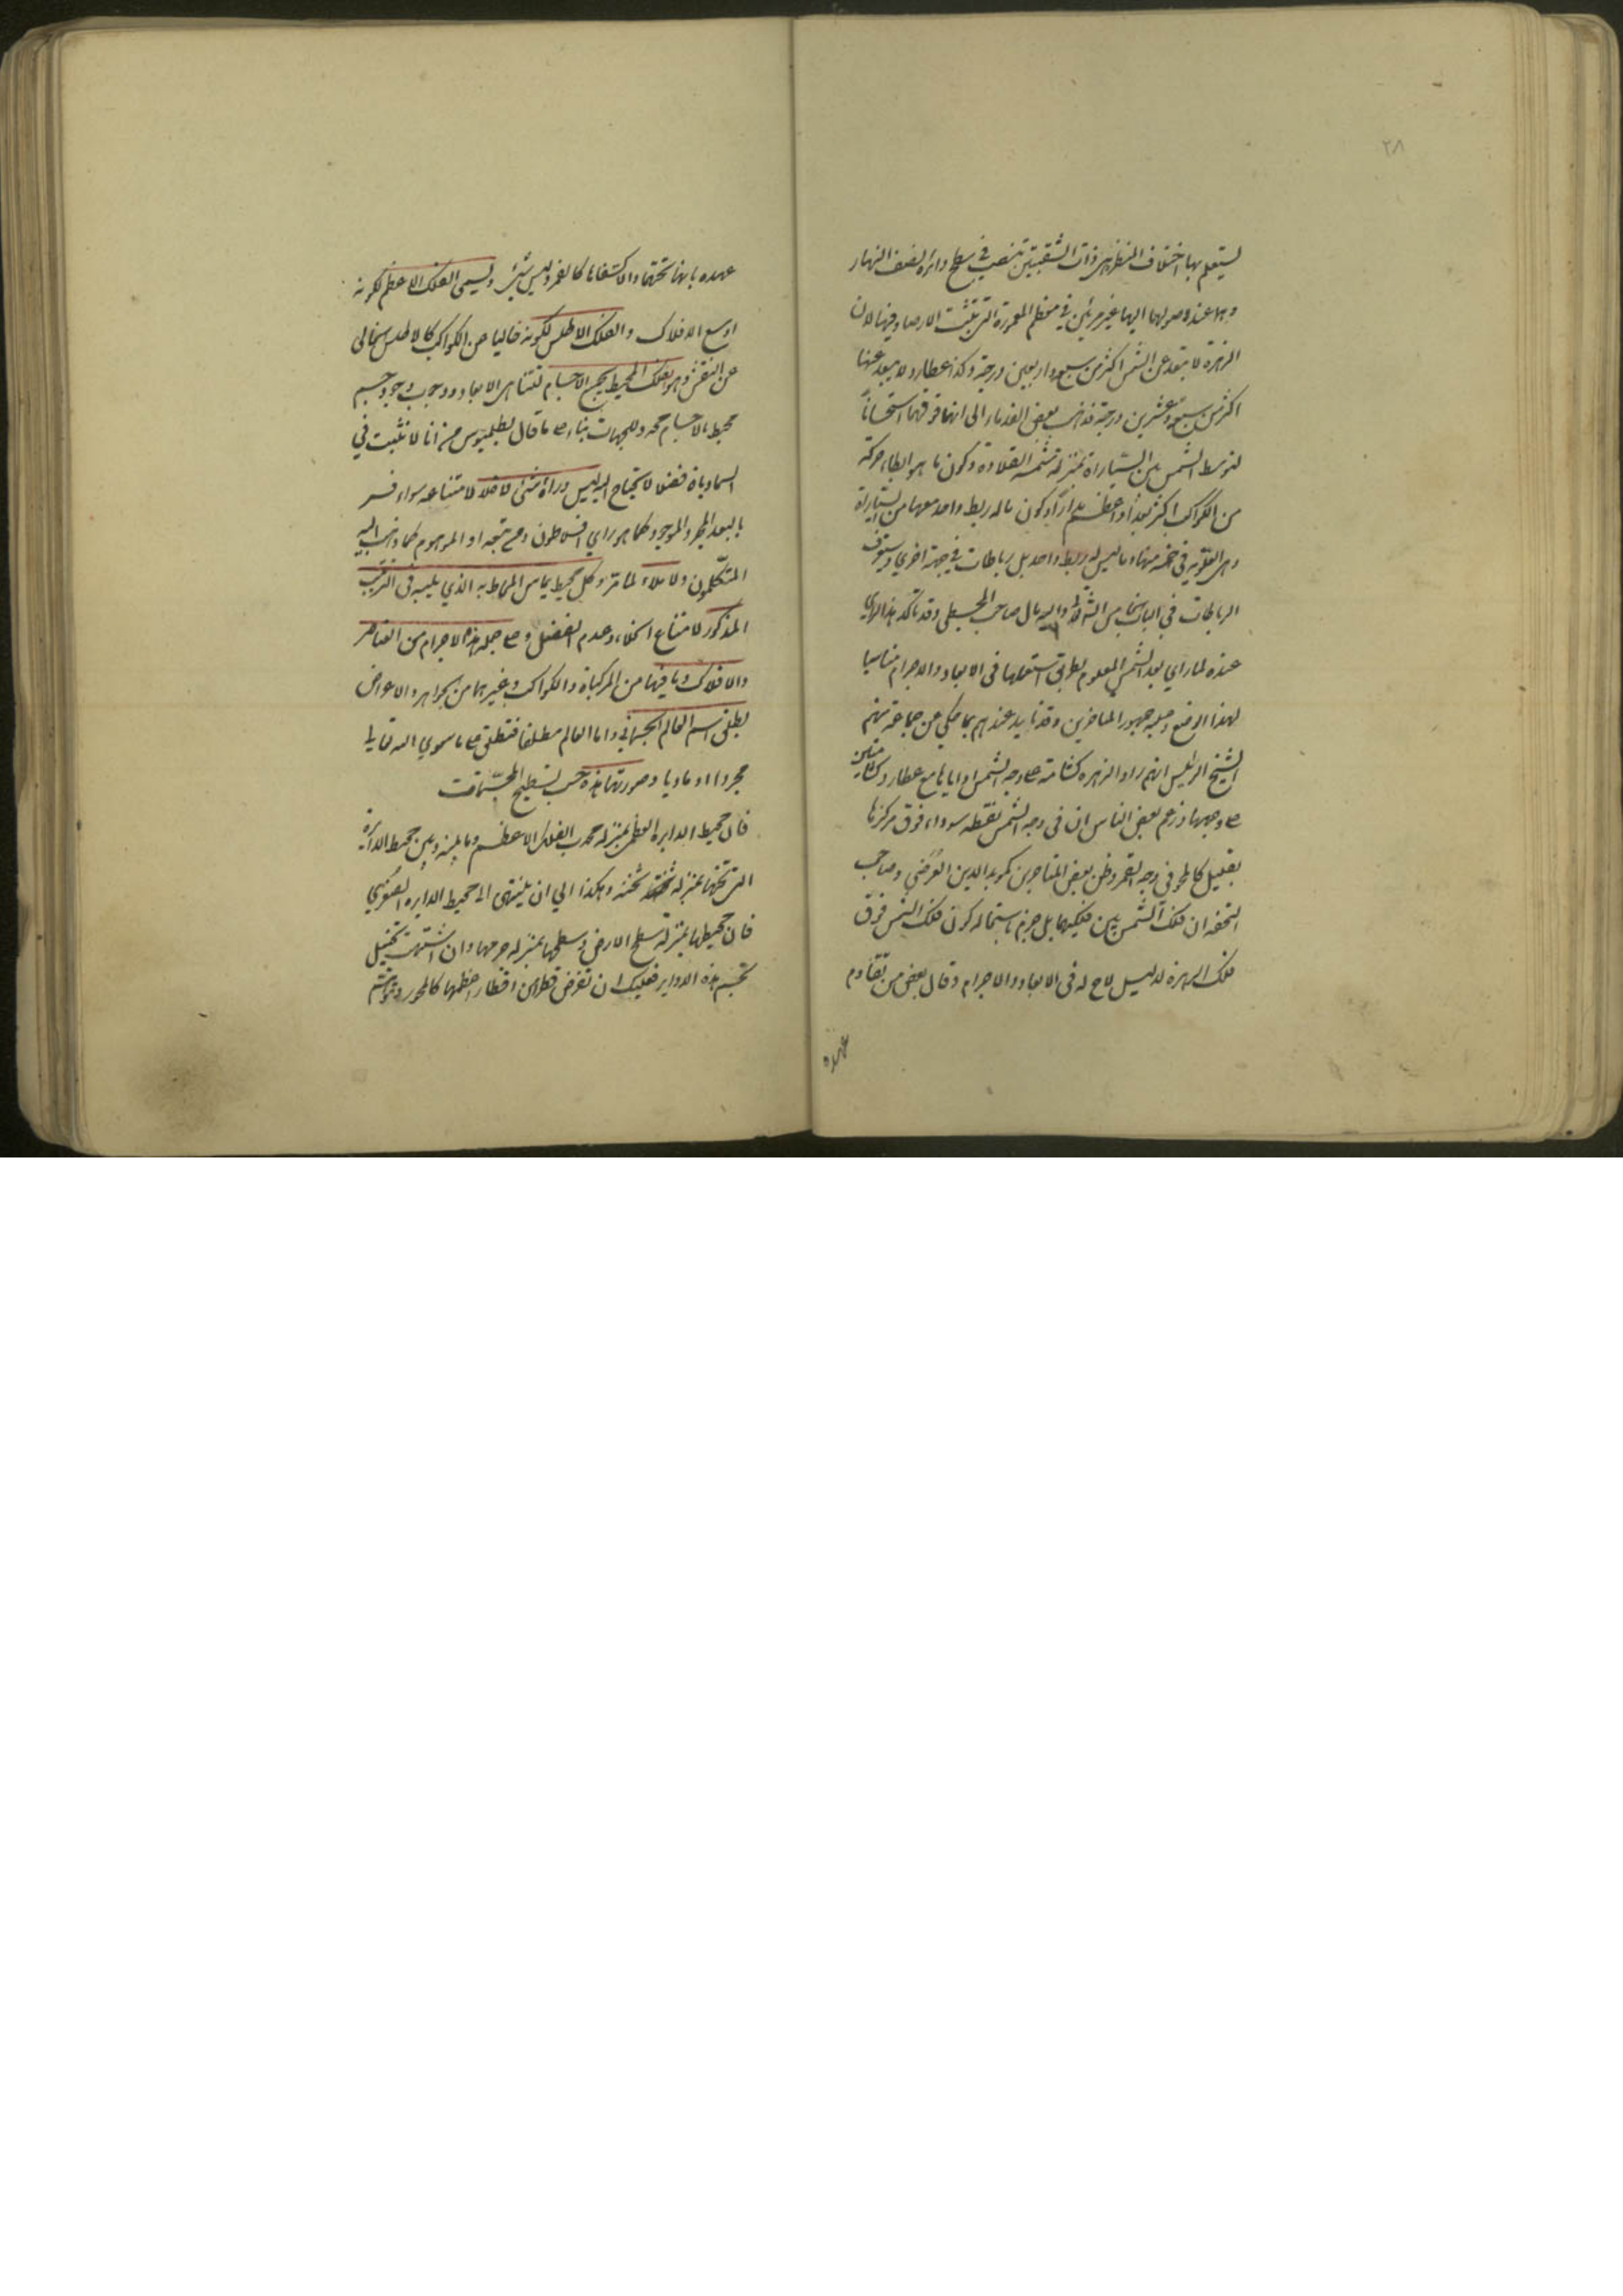 ٢٨
يستعلم بها اختلاف المنظر هي ذات الشعبتين تنصب في سطح دائرة نصف النهار
وهما عند وصولهما اليها غير مرئيين في معظم المعمورة التي تثبت الارصاد فيها لان
الزهرة لا تبعد عن الشمس اكثر من سبع واربعين درجة وكذا عطارد لا يبعد عنها
اكثر من سبع وعشرين درجة فذهب بعض القدماء الى انها فوقهما استحساناً
لتوسط الشمس بين السيارة بمنزلة شمسة القلادة وكون ما هو ابطاء حركة
من الكواكب اكثر بعداً واعظم مداراً وكون ماله ربط واحد معها من السيارة
وهي العلوية في جهة منها وما ليس له ربط واحد بل رباطات في جهة اخري وستعرف
الرباطات في الباب الخامس واليه مال صاحب المجسطي وقد تأكد هذا الراي
عنده لما راي بعد الشمس المعلوم بطريق استعملها في الابعاد والاجرام مناسبا
لهذا الوضع وعليه جمهور المتاخرين وقد تايد عندهم بما حكي عن جماعة منهم
الشيخ الرئيس انهم راوا الزهره كشامة على وجه الشمس اوايا ما مع عطارد كشامتين
على وجهها وزعم بعض الناس ان في وجه الشمس نقطة سوداء فوق مركزها
بقليل كالمحو في وجه القمر وظن بعض المتاخرين كمويد الدين العرضي وصاحب
التحفه ان فلك الشمس بين فلكيهما بل جزم باستحاله كون فلك الشمس فوق
فلك الزهره لدليل لاح له في الابعاد والاجرام وقال بعض من تقادم
عهده
عهده بانها تحتهما والا كسفاها كالقمر وليس بشئ ويسمى الفلك الاعظم لكونه
اوسع الافلاك والفلك الاطلس لكونه خاليا عن الكواكب كالاطلس الخالي
عن النقش وهو الفلك المحيط بجميع الاجسام لتناهي الابعاد ووجوب وجود جسم
محيط بالاجسام محدد للجهات بناء على ما قال بطلميوس من انا لا نثبت في
السماوياة فضلا لا يحتاج اليه ليس وراءه شئ لا خلاء لامتناعه سواء فسر
بالبعد المجرد الموجود كما هو راي افلاطون ومن تبعه او الموهوم كما ذهب اليه
المتكلمون ولا ملاء لما مر وكل محيط يماس المحاط به الذي يليه في الترتيب
المذكور لامتناع الخلاء وعدم الفضل وعلى جملة هذه الاجرام من العناصر
والافلاك وما فيها من المركباة والكواكب وغيرهما من الجواهر والاعراض
يطلق اسم العالم الجسماني واما العالم مطلقا فيطلق على ما سوي الله تعالى
مجردا او ماديا وصورتها هذه حسب تسطيح المجسمات
فان محيط الدايره العظمي بمنزلة محدب الفلك الاعظم وما بينه وبين محيط الدائرة
التي تحتها بمنزلة ثخنه وهكذا الي ان ينتهي الى محيط الدايره الصغري
فان محيطها بمنزلة سطح الارض وسطحها بمنزله جرمها وان اشتهيت تخيل
تجسم هذه الدواير فعليك ان تفرض قطرا من اقطار اعظمها كالمحور وتتوهم